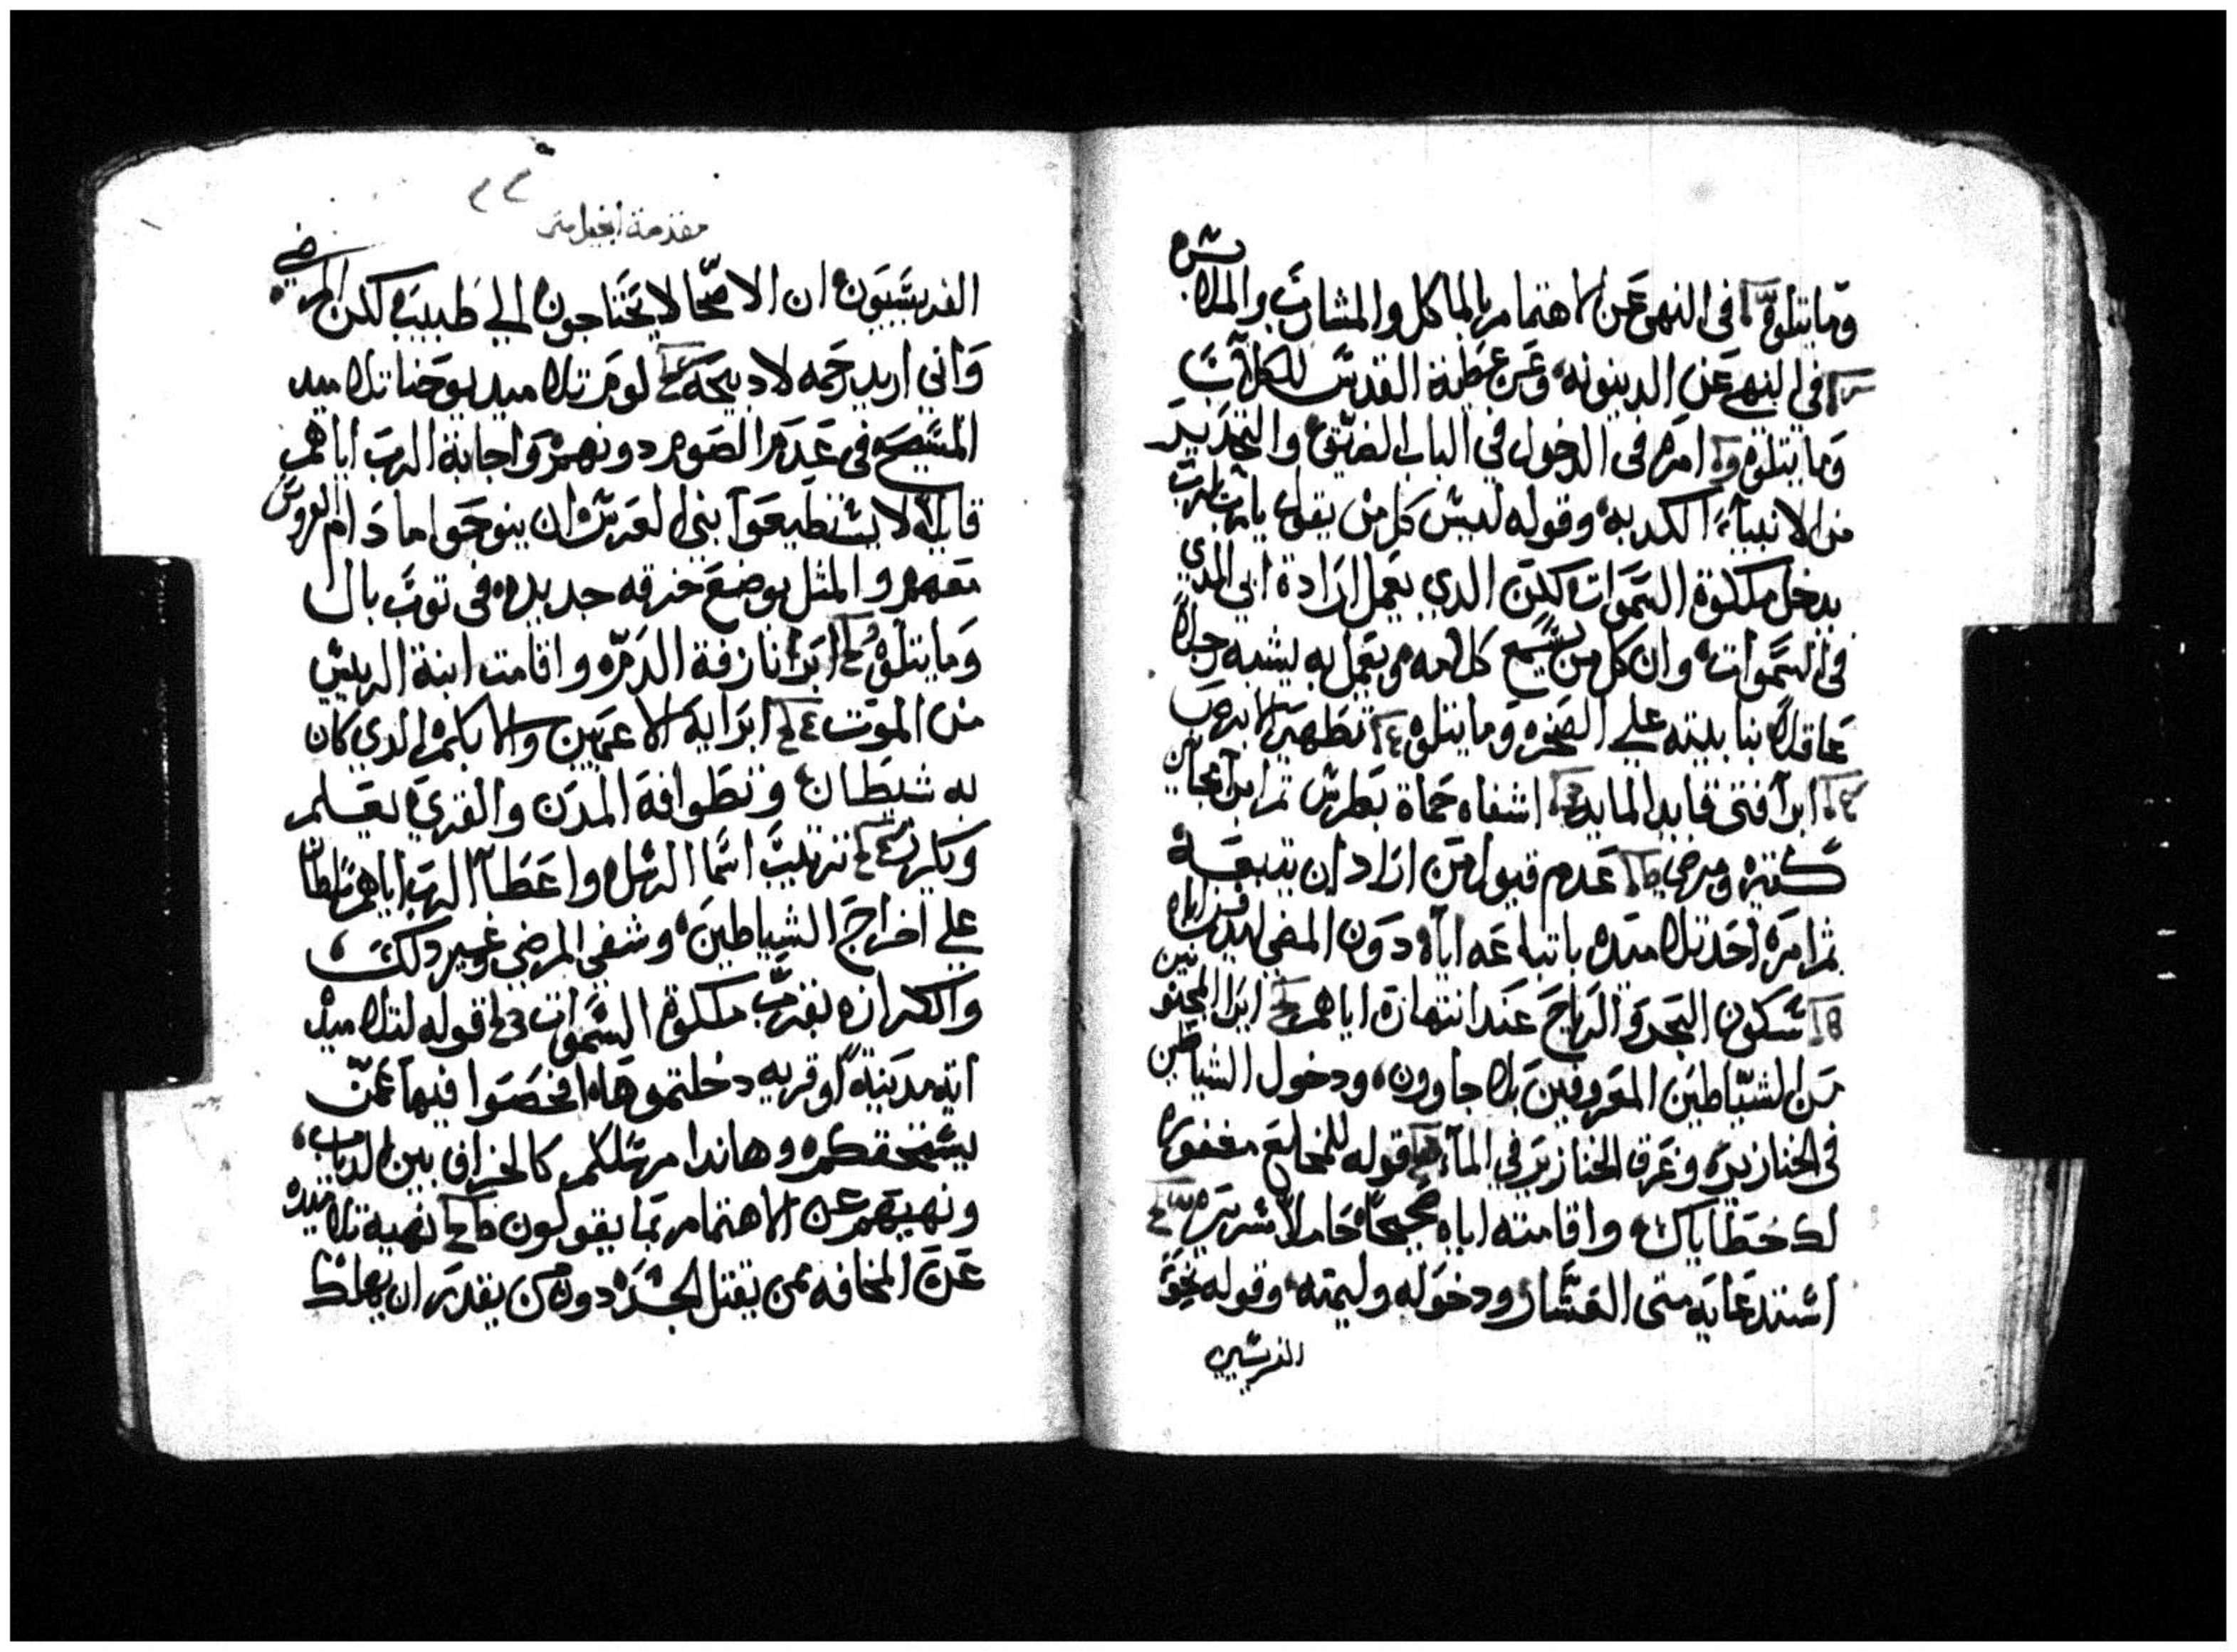 وما يتلوه في النهى عن الاهتمام بالماكل والمشارب والملابس
في النهي عن الدينونه وعن عطية القدس للكلاب
وما يتلوه امره في الدخول في الباب الضيق والتحذير
من الانبياء الكدبه وقوله ليس كل من يقول يارب يارب
يدخل ملكوة السموات لكن الدي يعمل ارادة ابي الدي
في السموات وان كل من يسمع كلامه ويعمل به يشبه رجلاً
عاقلاً بنا بيته علي الصخره وما يتلوه تطهير الابرص
ابرا فتى قايد المايه اشفاه حماة بطرس تم ابرا مجانين
كثيره ومرضي عدم قبول من اراد ان يتبعه
ثم امره احد تلاميده باتباعه اياه دون المضي ليدفن اباه
سكون البحر والرياح عند انتهاره اياهم ابرا المجنونين
من الشياطين المعروفين بلاجاورون ودخول الشياطين
في الخنازير وغرق الخنازير في الماء قوله للمخلع مغفوره
لك خطاياك واقامته اياه صحيحاً حاملاً سريره
استدعايه متى العشار ودخوله وليمته وقوله نحو
الفريسيين
مقدمة انجيل متى
الفريسيون ان الاصحا لا يحتاجون الي طبيب لكن المرضي
واني اريد رحمه لا دبيحه لوم تلاميد يوحنا تلاميد
المسيح في عدم الصوم دونهم واجابة الرب اياهم
قايلاً لا يستطيعوا بني العرس ان ينوحوا ما دام العروس
معهم والمثل بوضع خرقه جديده في توب بال
وما يتلوه ابرا نازفة الدم واقامت ابنة الريس
من الموت ابرايه الاعميين والابكم الدي كان
به شيطان وتطوافه المدن والقري يعلم
ويكرز ترتيب اسما الرسل واعطا الرب اياهم سلطاناً
علي اخراج الشياطين وشفي المرضي وغير دلك
والكرازه بقرب ملكوة السموات قوله لتلاميد
ايه مدينة او قريه دخلتموها افحصوا فيها عمن
يستحقكم وهاندا مرسلكم كالخراف بين الدياب
ونهيهم عن الاهتمام بما يقولون نهيه تلاميده
عن المخافه ممن يقتل الجسد دون من يقدر ان يهلك